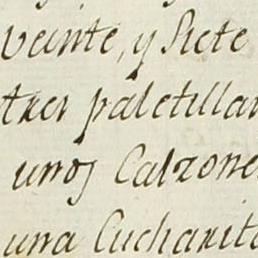 veinte, y Siete
tres paletillas
unos Calzone
una Cucharita